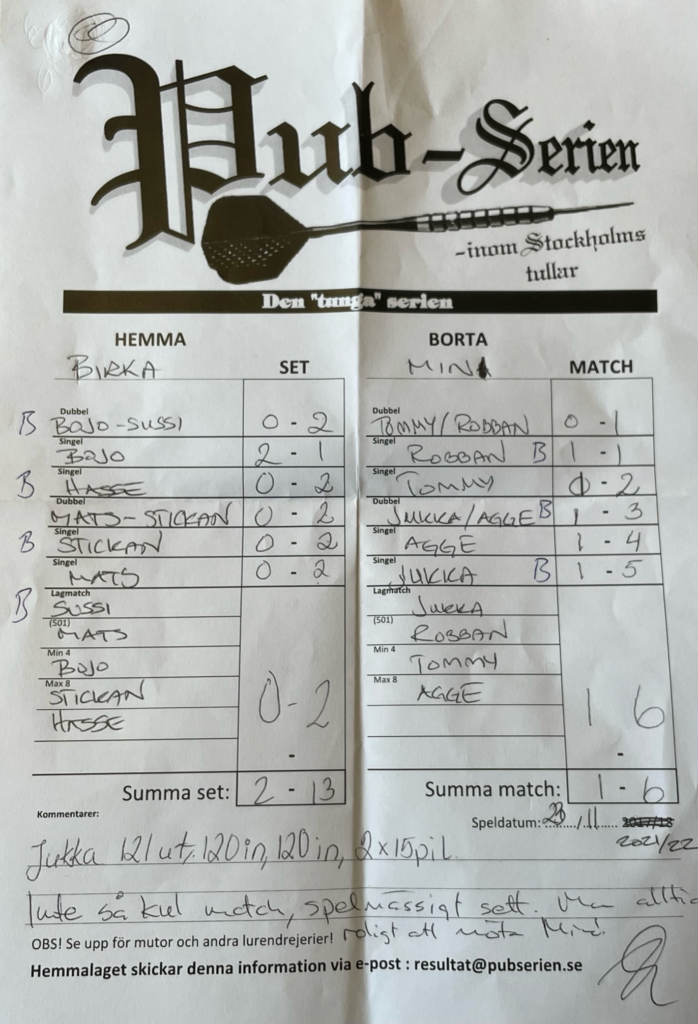 Pub-Serien
-inom Stockholms
tullar
Den "tunga" serien
HEMMA BORTA
BIRKA SET MINA MATCH
Dubbel Dubbel
B BOJO-SUSSI 0 - 2 TOMMY/ROBBAN 0 - 1
Singel Singel
BOJO 2 - 1 ROBBAN B 1 - 1
Singel Singel
B HASSE 0 - 2 TOMMY 1 - 2
Dubbel Dubbel
MATS-STICKAN 0 - 2 JUKKA/AGGE B 1 - 3
Singel Singel
B STICKAN 0 - 2 AGGE 1 - 4
Singel Singel
MATS 0 - 2 JUKKA B 1 - 5
Lagmatch Lagmatch
B SUSSI JUKKA
(501) (501)
MATS ROBBAN
Min 4 Min 4
BOJO TOMMY
Max 8 Max 8
STICKAN AGGE
HASSE 0-2 1 6
- -
Summa set: 2 - 13 Summa match: 1 - 6
Kommentarer: Speldatum: 23/11 2017/18
2021/22
Jukka 121 ut, 120in, 120in, 2x15pil.
Inte så kul match, spelmässigt sett. Men alltid
roligt att möta Mina!
OBS! Se upp för mutor och andra lurendrejerier!
Hemmalaget skickar denna information via e-post : resultat@pubserien.se